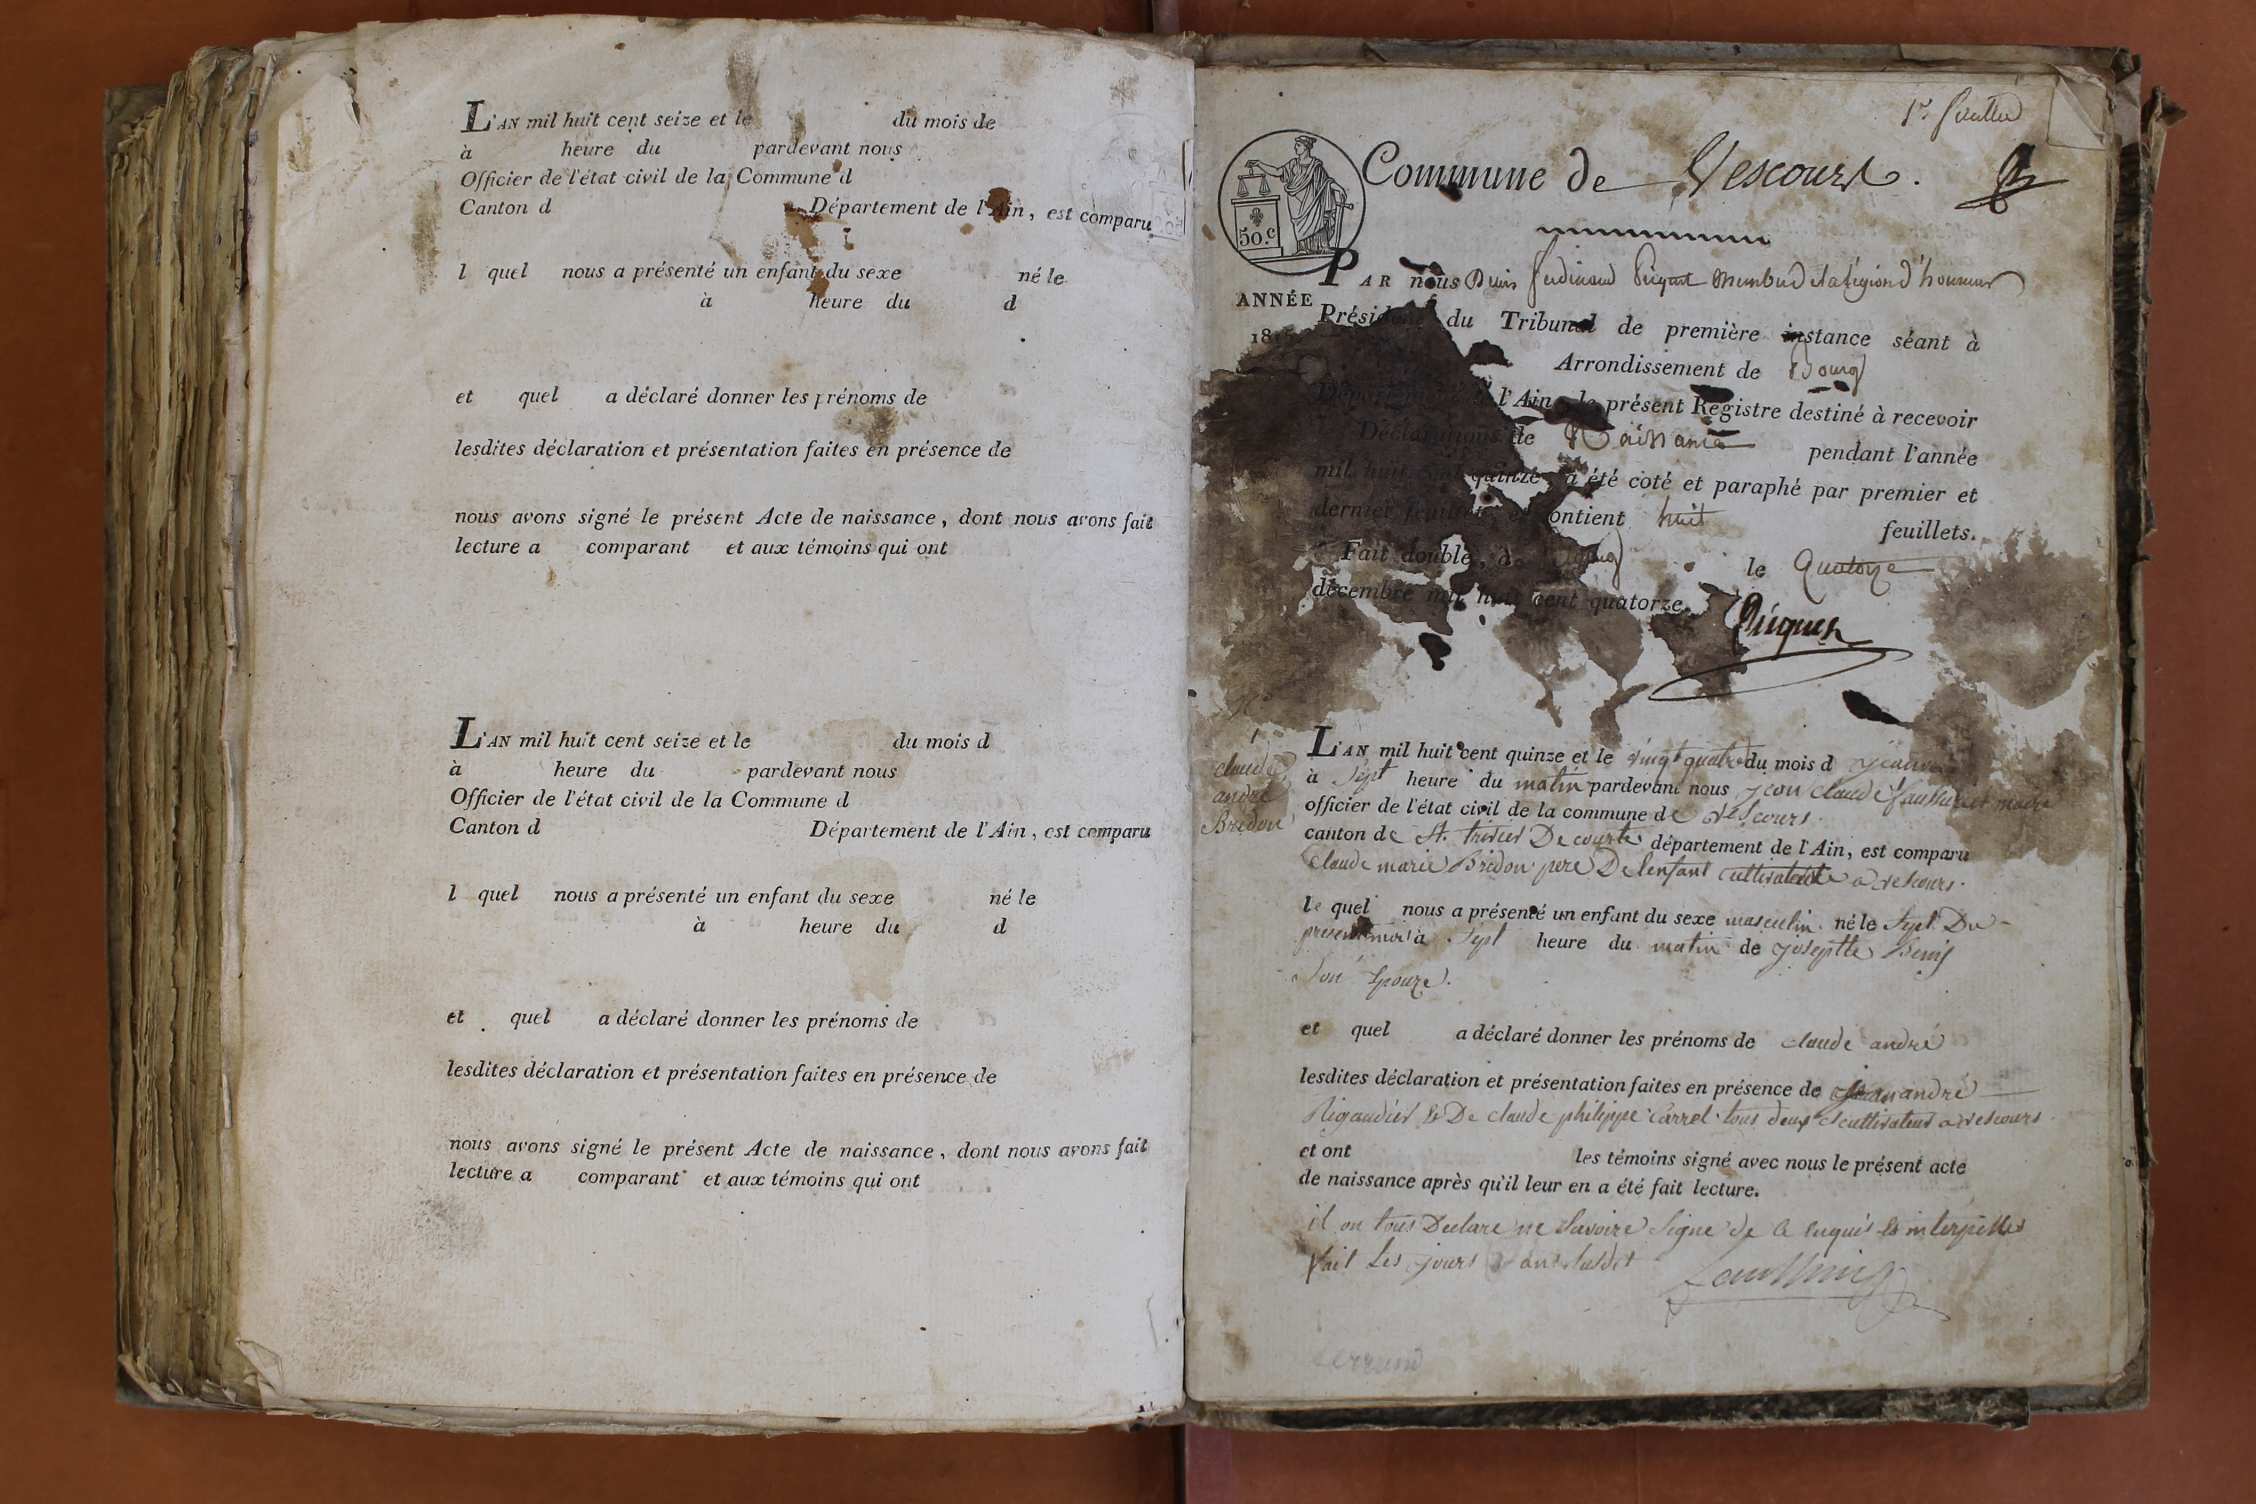 L'AN mil huit cent seize et le du mois de
à heure du pardevant nous
Officier de l'état civil de la Commune d
Canton d Département de l'Ain, est comparu
l quel nous a présenté un enfant du sexe né le
à heure du d
et quel a déclaré donner les prénoms de
lesdites déclaration et présentation faites en présence de
nous avons signé le présent Acte de naissance, dont nous avons fait
lecture a comparant et aux témoins qui ont
L'AN mil huit cent seize et le du mois d
à heure du pardevant nous
Officier de l'état civil de la Commune d
Canton d Département de l'Ain, est comparu
l quel nous a présenté un enfant du sexe né le
à heure du d
et quel a déclaré donner les prénoms de
lesdites déclaration et présentation faites en présence de
nous avons signé le présent Acte de naissance, dont nous avons fait
lecture a comparant et aux témoins qui ont
1er feuillet
Commune de Vescours.
50.c
PAR nous ferdinand membre de la légion d'honneur
ANNÉE
Président du Tribunal de première instance séant à
Arrondissement de Bourg
Département de l'Ain, le présent Registre destiné à recevoir
Déclarations de Naissance pendant l'année
mil huit cent quinze, a été coté et paraphé par premier et
dernier feuillet, et contient huit feuillets.
Fait double, à Bourg le Quatorze
décembre mil huit cent quatorze.
1
claude
andré
Bridon
L'AN mil huit cent quinze et le vingt quatre du mois d janvier
à Sept heure du matin pardevant nous jean claude maire
officier de l'état civil de la commune de vescours.
canton de St. trivier De courte département de l'Ain, est comparu
Claude marie Bridon pere De lenfant cultivateur a vescours.
le quel nous a présenté un enfant du sexe masculin né le Sept Du
present mois à Sept heure du matin de josephte Benis
Son Epouze.
et quel a déclaré donner les prénoms de claude andré
lesdites déclaration et présentation faites en présence de andré
Rigaudier & De claude philippe Carrel tous deux cultivateur a vescours
et ont les témoins signé avec nous le présent acte
de naissance après qu'il leur en a été fait lecture.
il on tous Declare ne Savoire Signe de ce enquis & interpelles
fait Les jours & an susdit